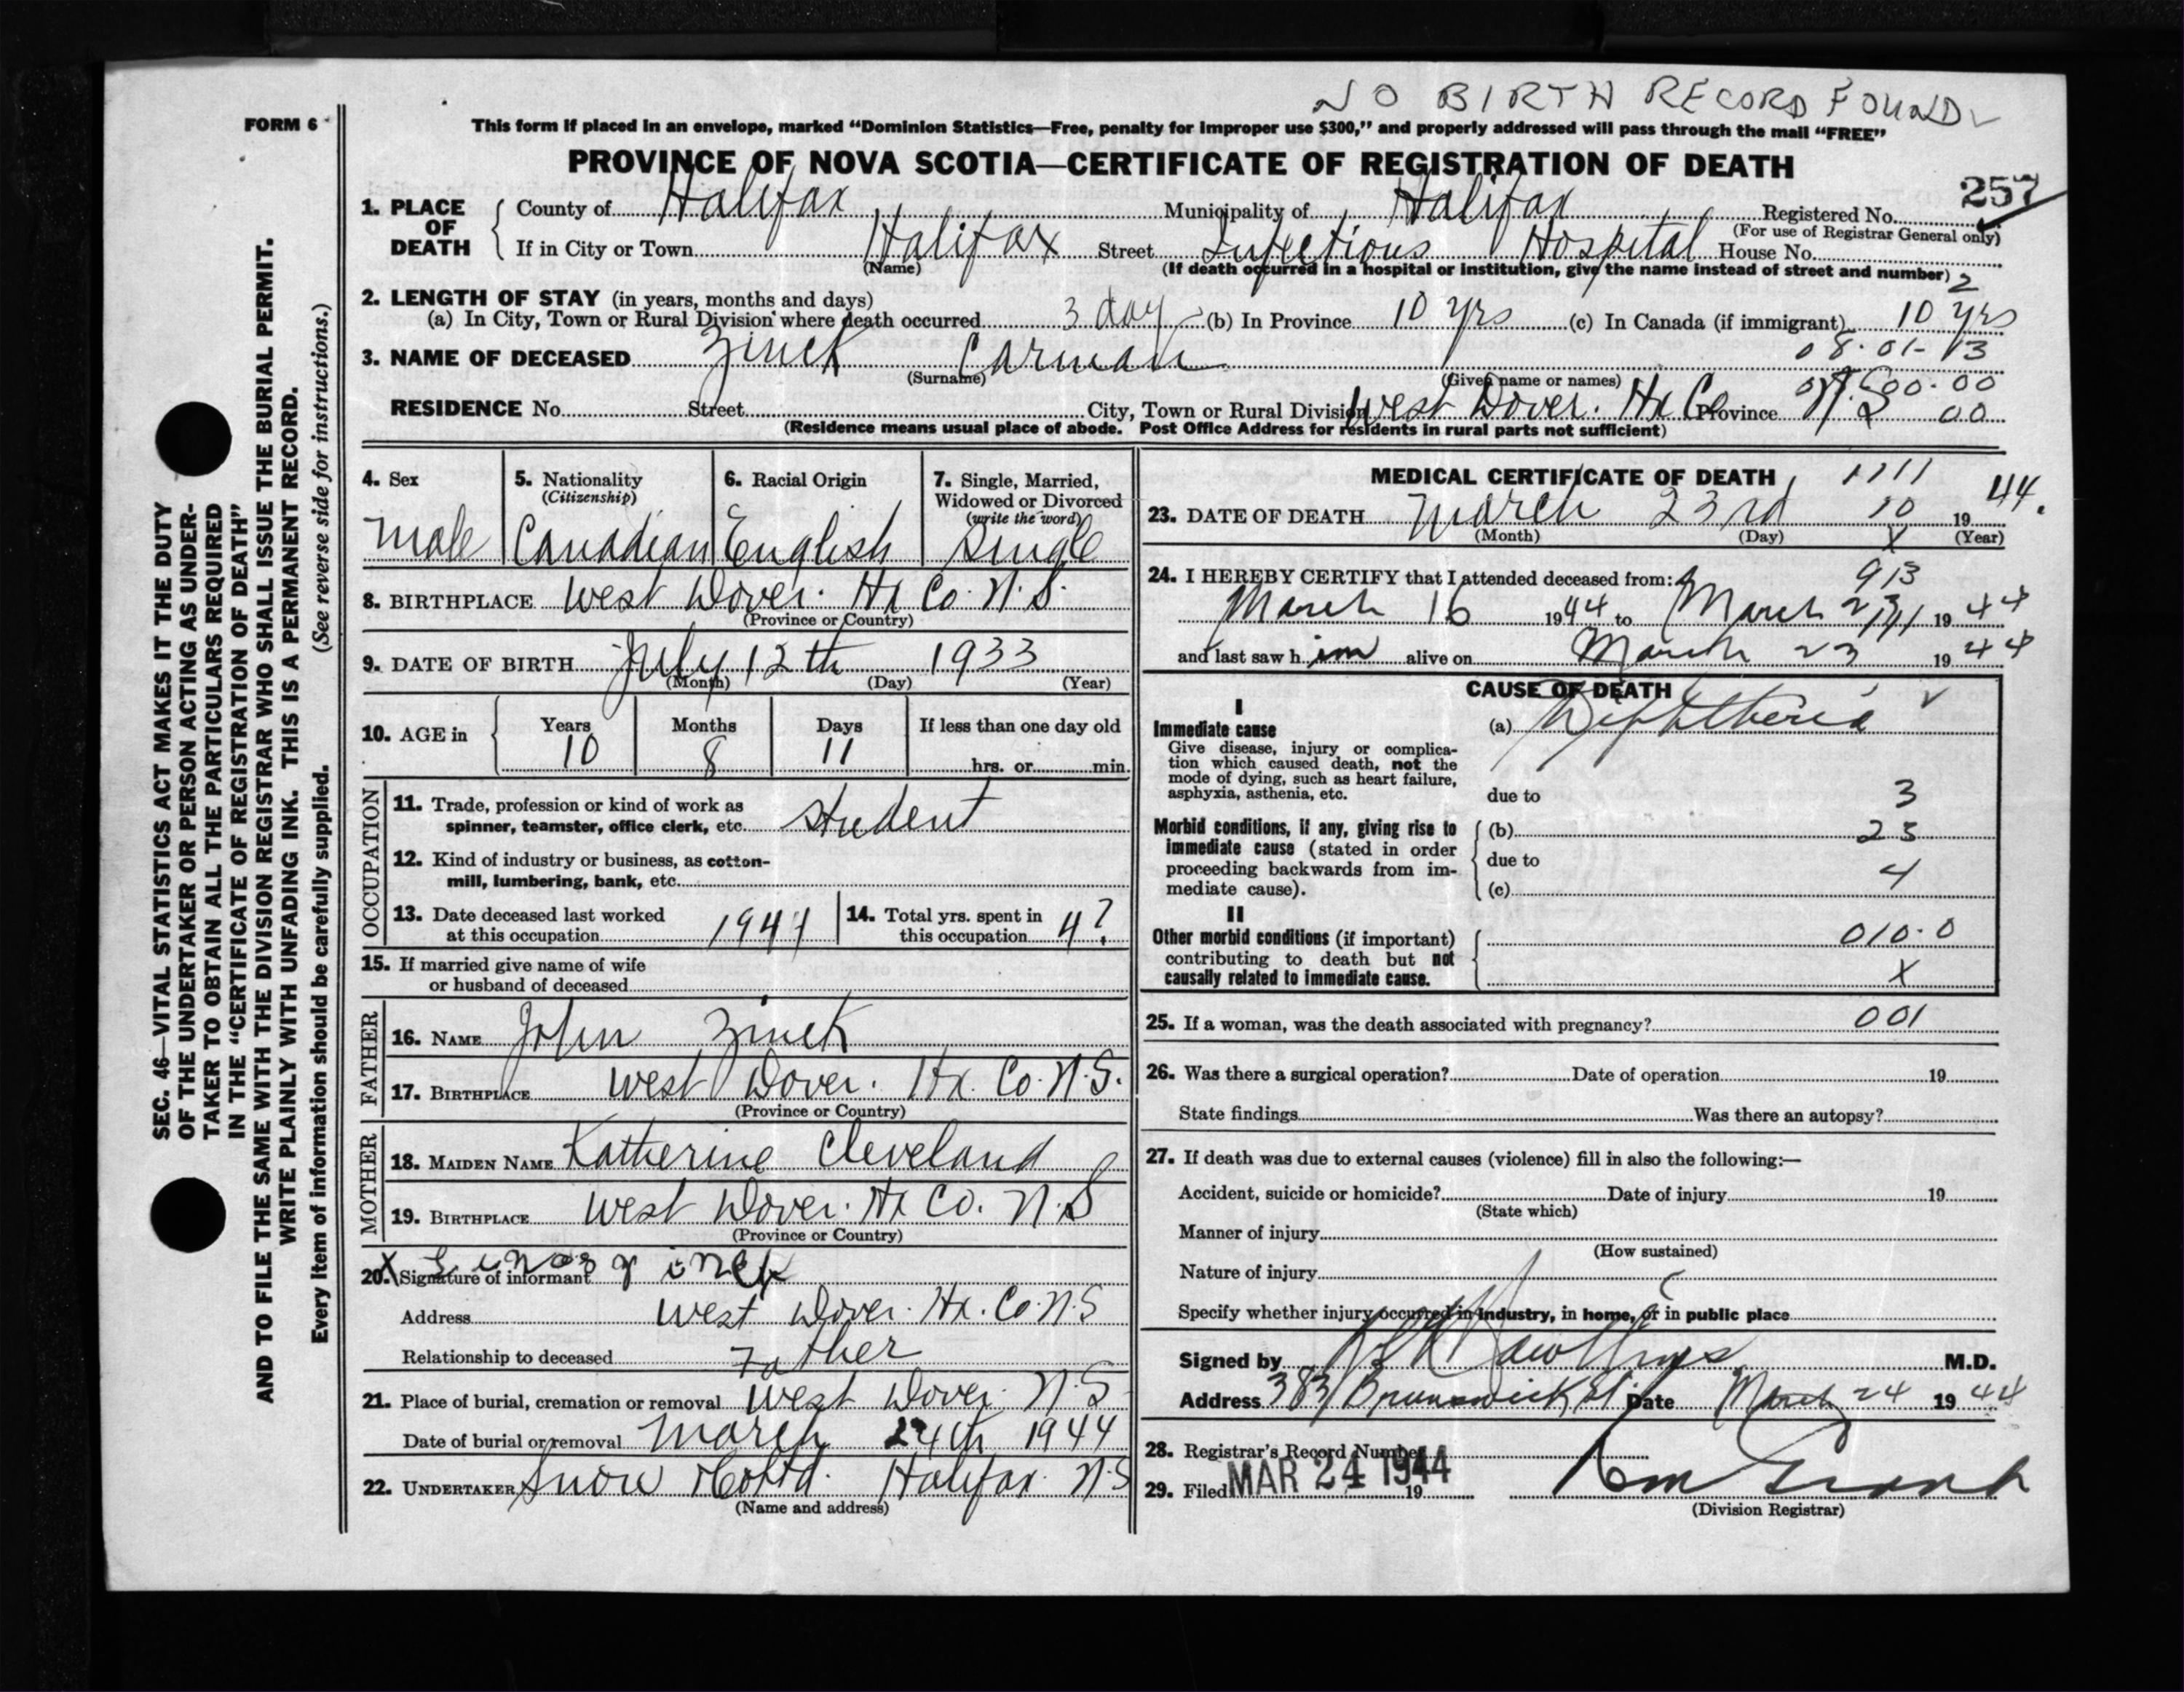 NO BIRTH RECORD FOUND
FORM 6
This form if placed in an envelope, marked “Dominion Statistics—Free, penalty for improper use $300,” and properly addressed will pass through the mail “FREE”
PROVINCE OF NOVA SCOTIA—CERTIFICATE OF REGISTRATION OF DEATH
257
1. PLACE OF DEATH County of Halifax Municipality of Halifax Registered No.
(For use of Registrar General only)
If in City or Town Halifax Street Infectious Hospital House No.
(Name) (If death occurred in a hospital or institution, give the name instead of street and number)
2
2. LENGTH OF STAY (in years, months and days)
(a) In City, Town or Rural Division where death occurred 3 day (b) In Province 10 yrs (c) In Canada (if immigrant) 10 yrs
08-01-13
3. NAME OF DECEASED Zinck Carman
(Surname) (Given name or names)
RESIDENCE No. Street City, Town or Rural Division West Dover. Hx Co Province N.S 00
(Residence means usual place of abode. Post Office Address for residents in rural parts not sufficient)
4. Sex 5. Nationality (Citizenship) 6. Racial Origin 7. Single, Married, Widowed or Divorced (write the word)
Male Canadian English Single
8. BIRTHPLACE West Dover. Hx Co. N.S.
(Province or Country)
9. DATE OF BIRTH July 12th 1933
(Month) (Day) (Year)
10. AGE in Years Months Days If less than one day old
10 8 11 hrs. or min.
OCCUPATION
11. Trade, profession or kind of work as
spinner, teamster, office clerk, etc. student
12. Kind of industry or business, as cotton-
mill, lumbering, bank, etc.
13. Date deceased last worked
at this occupation 1944
14. Total yrs. spent in
this occupation 4?
15. If married give name of wife
or husband of deceased
FATHER
16. NAME John Zinck
17. BIRTHPLACE West Dover. Hx. Co. N.S.
(Province or Country)
MOTHER
18. MAIDEN NAME Katherine Cleveland
19. BIRTHPLACE West Dover. Hx Co. N.S
(Province or Country)
20. X Signature of informant zinck
Address West Dover. Hx. Co. N.S
Relationship to deceased Father
21. Place of burial, cremation or removal West Dover. N.S
Date of burial or removal March 24th 1944
22. UNDERTAKER Snow & Co Ltd. Halifax N.S
(Name and address)
MEDICAL CERTIFICATE OF DEATH
1111
23. DATE OF DEATH March 23rd 10 1944.
(Month) (Day) X (Year)
913
24. I HEREBY CERTIFY that I attended deceased from:
March 16 1944 to March 23 1944
and last saw him alive on March 23 1944
CAUSE OF DEATH
I
Immediate cause
Give disease, injury or complica-
tion which caused death, not the
mode of dying, such as heart failure,
asphyxia, asthenia, etc.
(a) Diphtheria
due to 3
Morbid conditions, if any, giving rise to
immediate cause (stated in order
proceeding backwards from im-
mediate cause).
(b) 23
due to 4
(c)
II
Other morbid conditions (if important)
contributing to death but not
causally related to immediate cause.
010.0
X
25. If a woman, was the death associated with pregnancy? 001
26. Was there a surgical operation? Date of operation 19
State findings Was there an autopsy?
27. If death was due to external causes (violence) fill in also the following:—
Accident, suicide or homicide? Date of injury 19
(State which)
Manner of injury
(How sustained)
Nature of injury
Specify whether injury occurred in industry, in home, or in public place
Signed by M.D.
Address 383 Brunswick St. Date March 24 1944
28. Registrar's Record Number
29. Filed MAR 24 1944 19
(Division Registrar)
SEC. 46—VITAL STATISTICS ACT MAKES IT THE DUTY
OF THE UNDERTAKER OR PERSON ACTING AS UNDER-
TAKER TO OBTAIN ALL THE PARTICULARS REQUIRED
IN THE “CERTIFICATE OF REGISTRATION OF DEATH”
AND TO FILE THE SAME WITH THE DIVISION REGISTRAR WHO SHALL ISSUE THE BURIAL PERMIT.
WRITE PLAINLY WITH UNFADING INK. THIS IS A PERMANENT RECORD.
Every item of information should be carefully supplied. (See reverse side for instructions.)